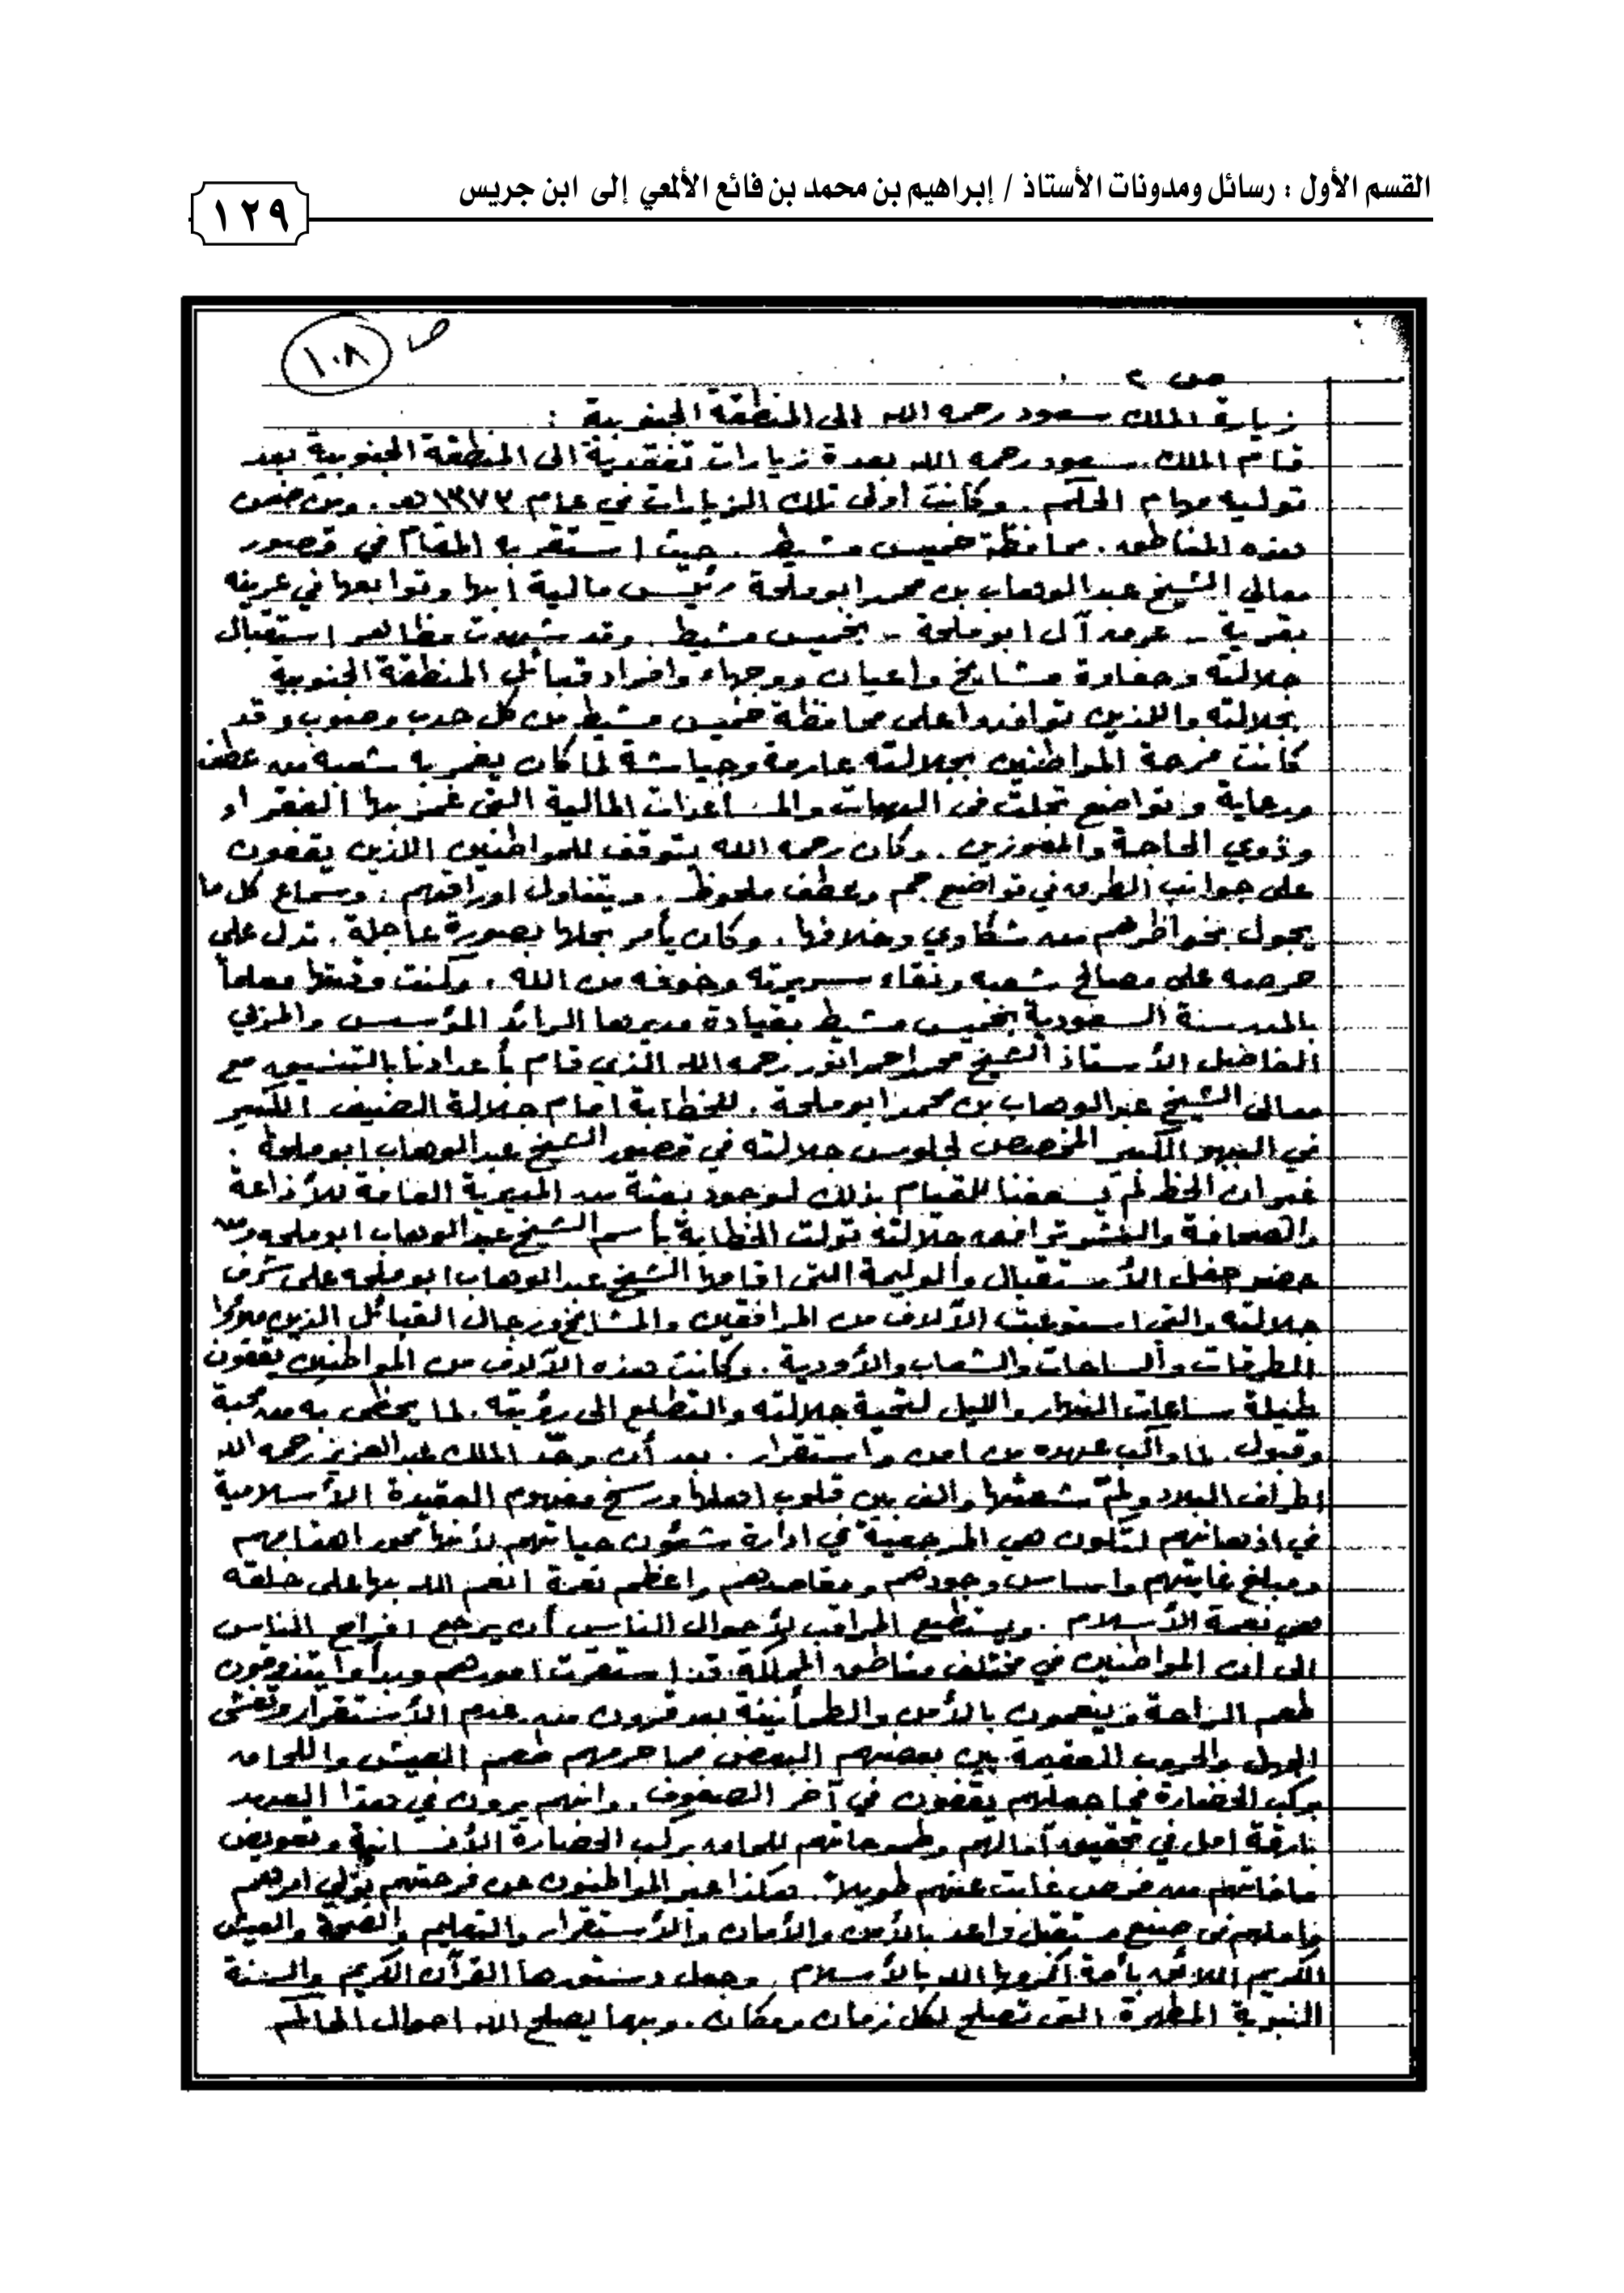 القسم الأول : رسائل ومدونات الأستاذ / إبراهيم بن محمد بن فائع الألمعي إلى ابن جريس
١٢٩
ص ١٠٨
ص ٢
زيارة الملك سعود رحمه الله إلى المنطقة الجنوبية :
قام الملك سعود رحمه الله بعدة زيارات تفقدية الى المنطقة الجنوبية بعد
توليه مهام الحكم . وكانت أولى تلك الزيارات في عام ١٣٧٣هـ . ومن ضمن
هذه المناطق . محافظة خميس مشيط . حيث استقر به المقام في قصور
معالي الشيخ عبدالوهاب بن محمد ابوملحة رئيس مالية أبها وتوابعها في عرينه
بقرية - عرق آل ابوملحة - بخميس مشيط . وقد شهدت مظاهر استقبال
جلالته وحفاوة مشايخ واعيان ووجهاء وافراد قبائل المنطقة الجنوبية
بجلالته والذين توافدوا على محافظة خميس مشيط من كل حدب وصوب وقد
كانت فرحة المواطنين بجلالته عارمة وجياشة لما كان يغمر به شعبه من عطف
ورعاية وتواضع تجلت في الهبات والمساعدات المالية التي غمر بها الفقراء
وذوي الحاجة والمعوزين . وكان رحمه الله يتوقف للمواطنين الذين يقفون
على جوانب الطرق في تواضع جم وعطف ملحوظ . ويتناول اوراقهم . وسماع كل ما
يجول بخواطرهم من شكاوي وخلافها . وكان يأمر بحلها بصورة عاجلة . تدل على
حرصه على مصالح شعبه ونقاء سريرته وخوفه من الله . وكنت وقتها معلماً
بالمدرسة السعودية بخميس مشيط بقيادة مديرها الرائد المؤسس والمربي
الفاضل الأستاذ الشيخ محمد احمد انور رحمه الله الذي قام بأعدادنا بالتنسيق مع
معالي الشيخ عبدالوهاب بن محمد ابوملحة . للخطابة امام جلالة الضيف الكبير
في البهو الكبير المخصص لجلوس جلالته في قصور الشيخ عبدالوهاب ابوملحة .
غير ان الحظ لم يسعفنا للقيام بذلك لوجود بعثة من المديرية العامة للأذاعة
والصحافة والنشر ترافق جلالته تولت الخطابة بأسم الشيخ عبدالوهاب ابوملحه وقد
حضر حفل الأستقبال والوليمة التي اقامها الشيخ عبدالوهاب ابوملحه على شرف
جلالته والتي استوعبت الآلاف من المرافقين والمشايخ ورجال القبائل الذين ملأوا
الطرقات والساحات والشعاب والأودية . وكانت هذه الآلاف من المواطنين يقفون
طيلة ساعات النهار والليل لتحية جلالته والتطلع الى رؤيته . لما يحظى به من محبة
وقبول . لما واكب عهده من امن واستقرار . بعد أن وحد الملك عبدالعزيز رحمه الله
اطراف البلاد ولم شعثها والف بين قلوب اهلها ورسخ مفهوم العقيدة الأسلامية
في اذهانهم لتكون هي المرجعية في ادارة شئون حياتهم لأنها محور اهتمامهم
ومبلغ غايتهم واساس وجودهم ومقاصدهم واعظم نعمة انعم الله بها على خلقه
هي نعمة الأسلام . ويستطيع المراقب لأحوال الناس أن يرجع افراح الناس
الى ان المواطنين في مختلف مناطق المملكة قد استقرت امورهم وبدأوا يتذوقون
طعم الراحة وينعمون بالأمن والطمأنينة بعد قرون من عدم الأستقرار وتفشي
الجهل والحروب العقيمة بين بعضهم البعض مما حرمهم طعم العيش واللحاق
بركب الحضارة مما جعلهم يقفون في آخر الصفوف . وانهم يرون في هذا العهد
بارقة امل في تحقيق آمالهم وطموحاتهم للحاق بركب الحضارة الأنسانية وتعويض
مافاتهم من فرص غابت عنهم طويلاً . هكذا عبر المواطنون عن فرحتهم بولي امرهم
واملهم في صنع مستقبل واعد بالأمن والأمان والأستقرار والتعليم والصحة والعيش
الكريم اللائق بأمة اكرمها الله بالأسلام . وجعل دستورها القرآن الكريم والسنة
النبوية المطهرة التي تصلح لكل زمان ومكان . وبهما يصلح الله احوال الحاكم